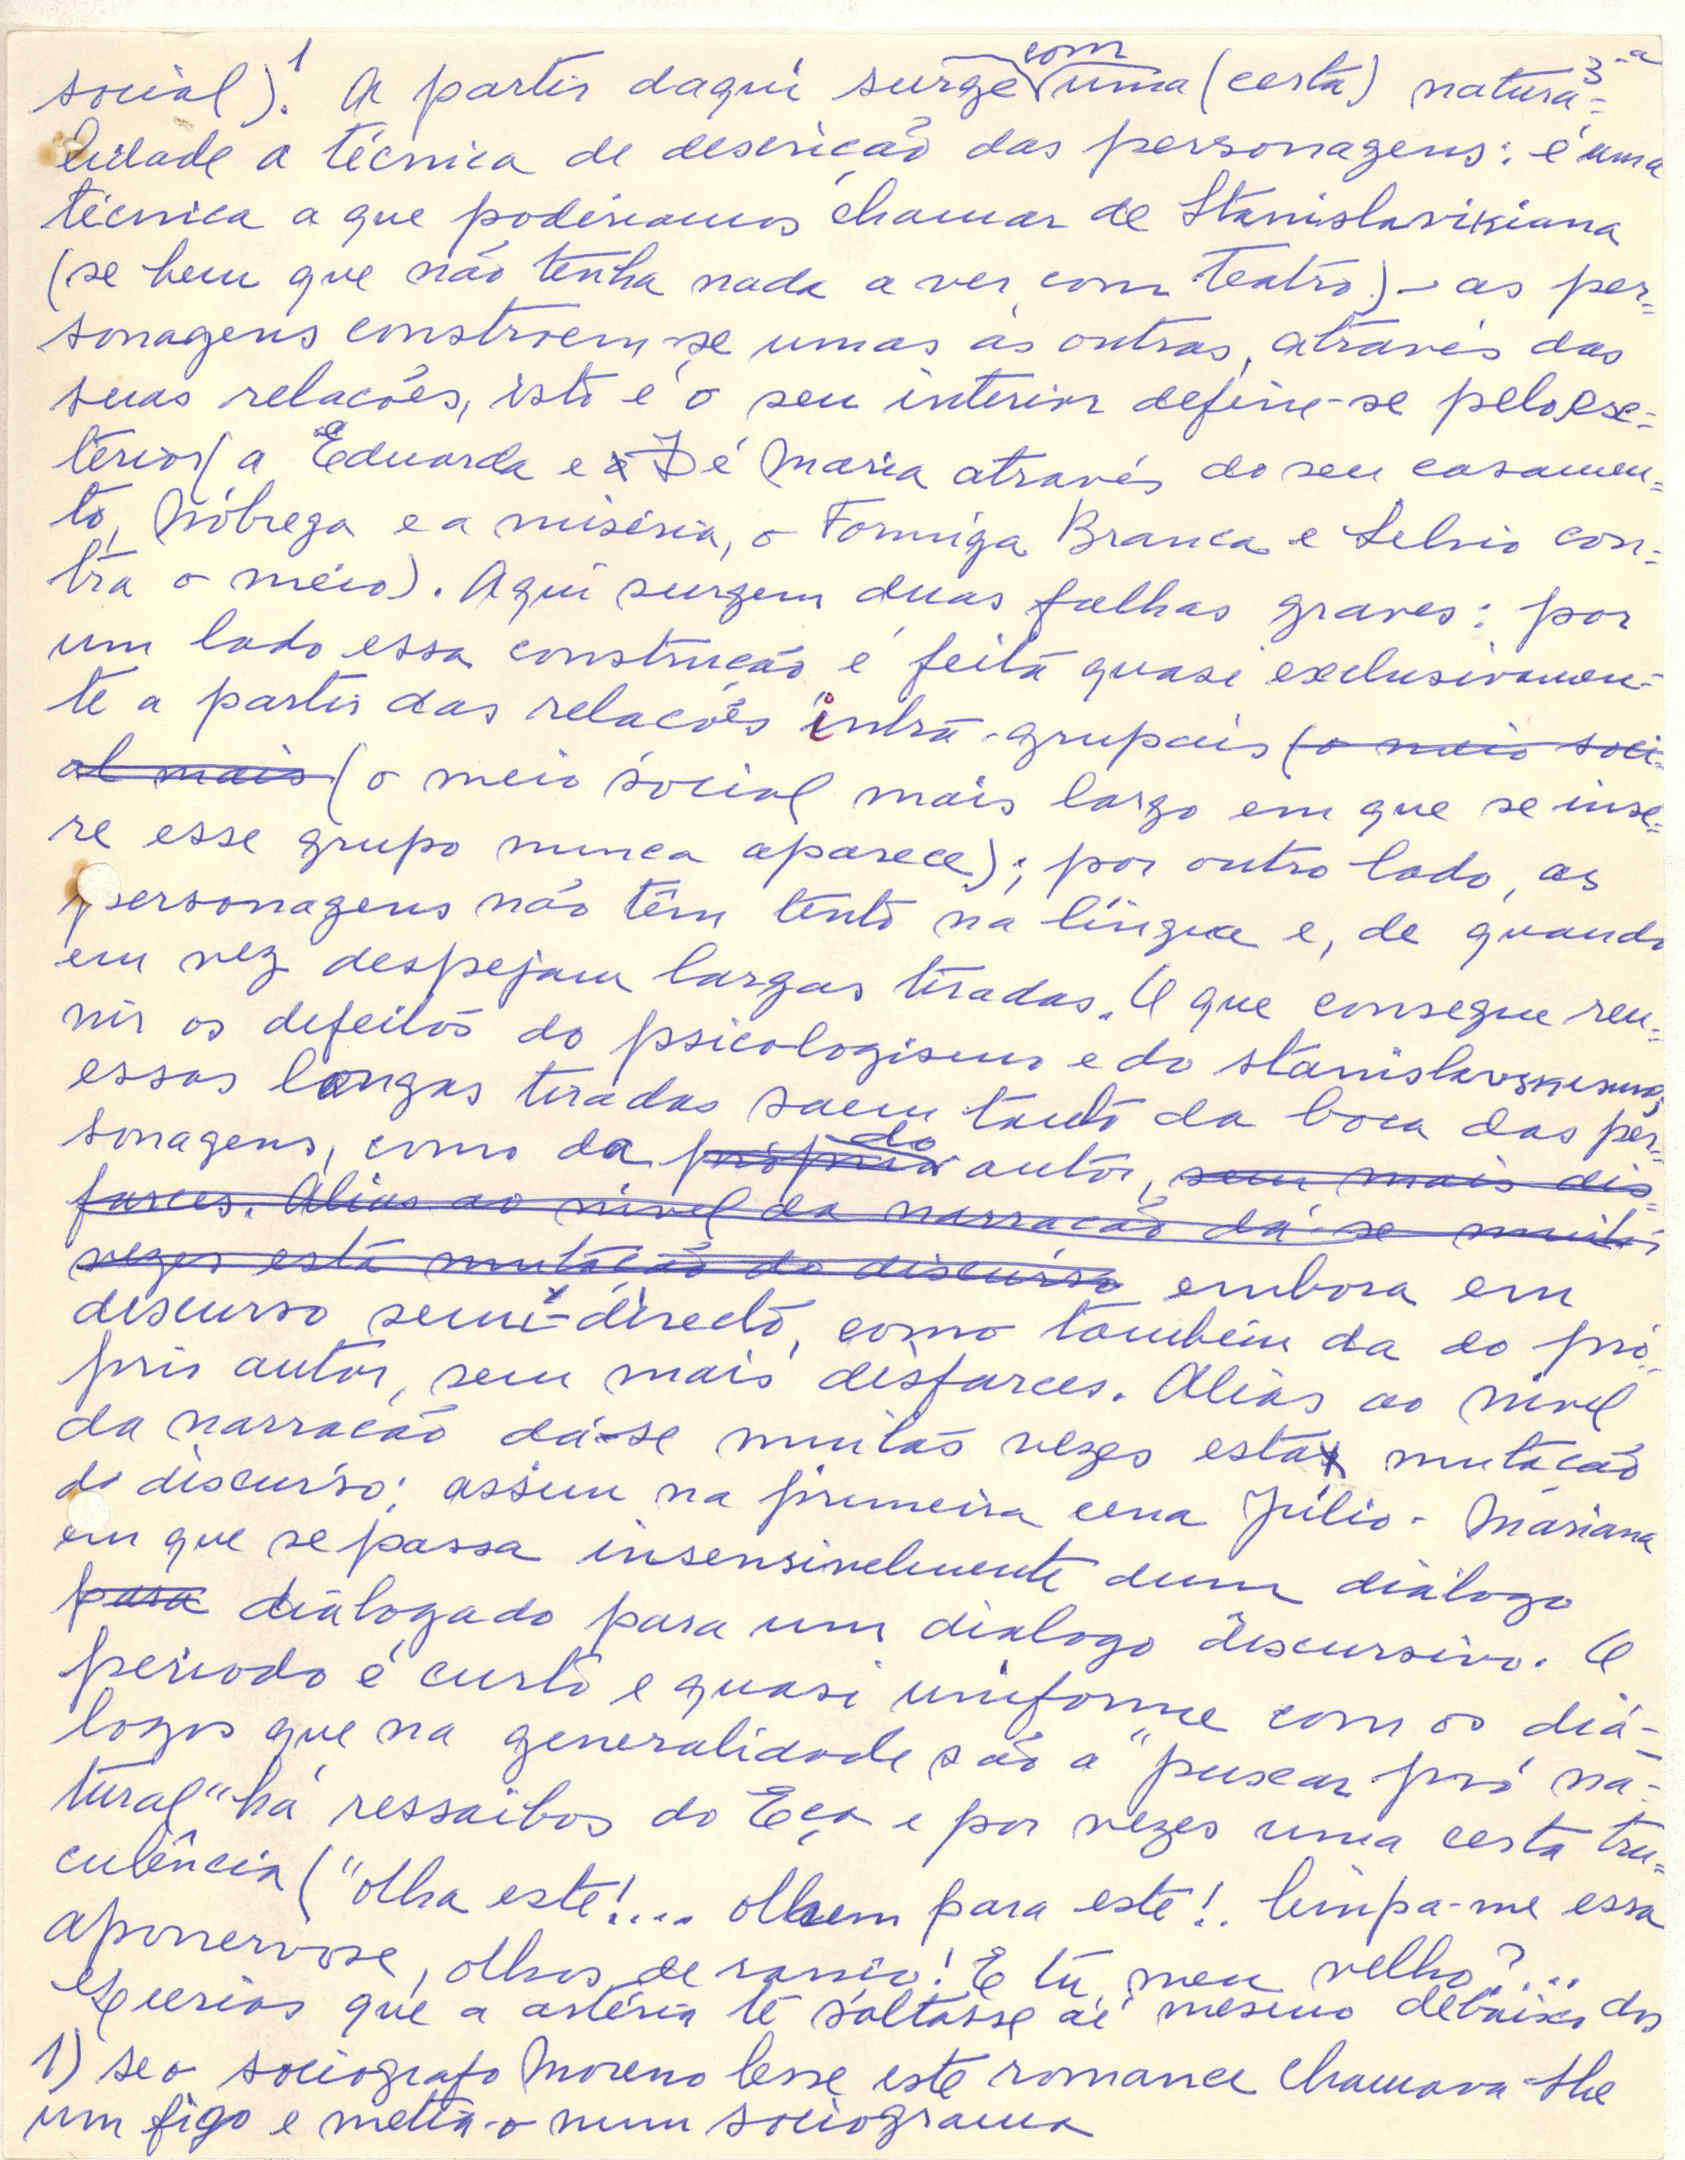 3-a
social).¹ A partir daqui surge com uma (certa) natura=
lidade a técnica de descrição das personagens: é uma
técnica a que poderiamos chamar de Stanislavikiana
(se bem que não tenha nada a ver com Teatro) - as per=
sonagens constroem-se umas às outras, através das
suas relações, isto é o seu interior define-se pelo ex=
terior (a Eduarda e a Zé Maria através do seu casamen=
to, Nóbrega e a miséria, o Formiga Branca e Selvio con=
tra o meio). Aqui surgem duas falhas graves: por
um lado essa construção é feita quasi exclusivamen=
te a partir das relações intra-grupais (o meio soci=
al mais (o meio social mais largo em que se inse=
re esse grupo nunca aparece); por outro lado, as
personagens não têm tento na língua e, de quando
em vez despejam largas tiradas. O que consegue reu=
nir os defeitos do psicologismo e do stanislavskismo;
essas longas tiradas saem tanto da boca das per=
sonagens, como da própria do autor, sem mais dis=
farces. Alias ao nivel da narração dá-se muitas
vezes esta mutação do discurso embora em
discurso semi-directo, como também da do pró=
prio autor, sem mais disfarces. Aliás ao nivel
da narração dá-se muitas vezes esta mutação
do discurso; assim na primeira cena Júlio - Mariana
em que se passa insensivelmente dum diálogo
para dialogado para um dialogo discursivo. O
periodo é curto e quasi uniforme com os diá-
logos que na generalidade são a "puxar pró na=
tural" há ressaibos do Eça e por vezes uma certa tru=
culência ("olha este!... olhem para este!. limpa-me essa
aponervose, olhos de ranço! E tu, meu velho?...
Querias que a artéria te saltasse aí mesmo debaixo dos
1) se o sociografo Moreno lesse este romance chamava-lhe
um figo e metia-o num sociograma